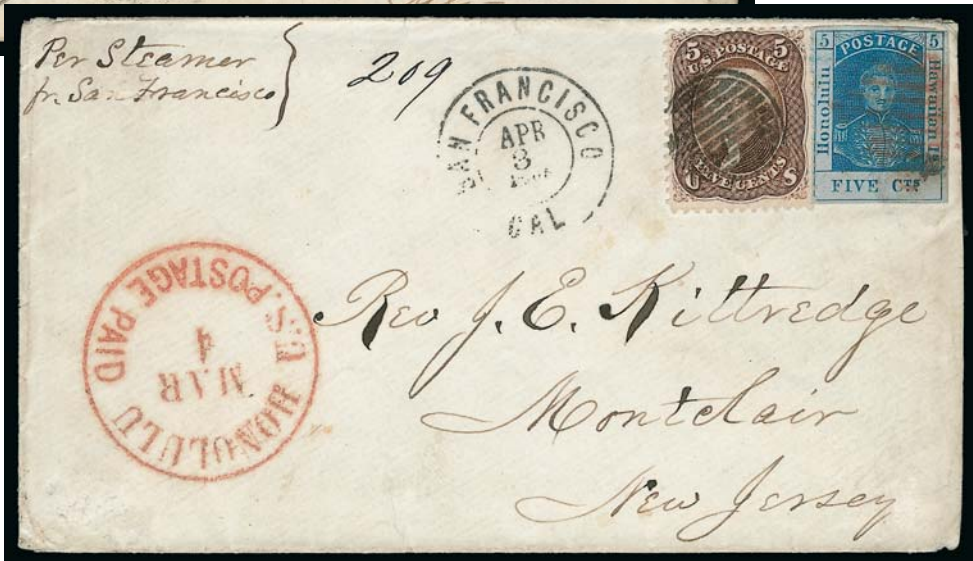 Per Steamer
fr. San Francisco
209
SAN FRANCISCO
APR
3
CAL
5 U.S. POSTAGE 5
U FIVE CENTS S
5 POSTAGE 5
Honolulu
Hawaiian Is.
FIVE CTS
HONOLULU U.S. POSTAGE PAID
MAR
4
Rev J. E. Kittredge
Montclair
New Jersey